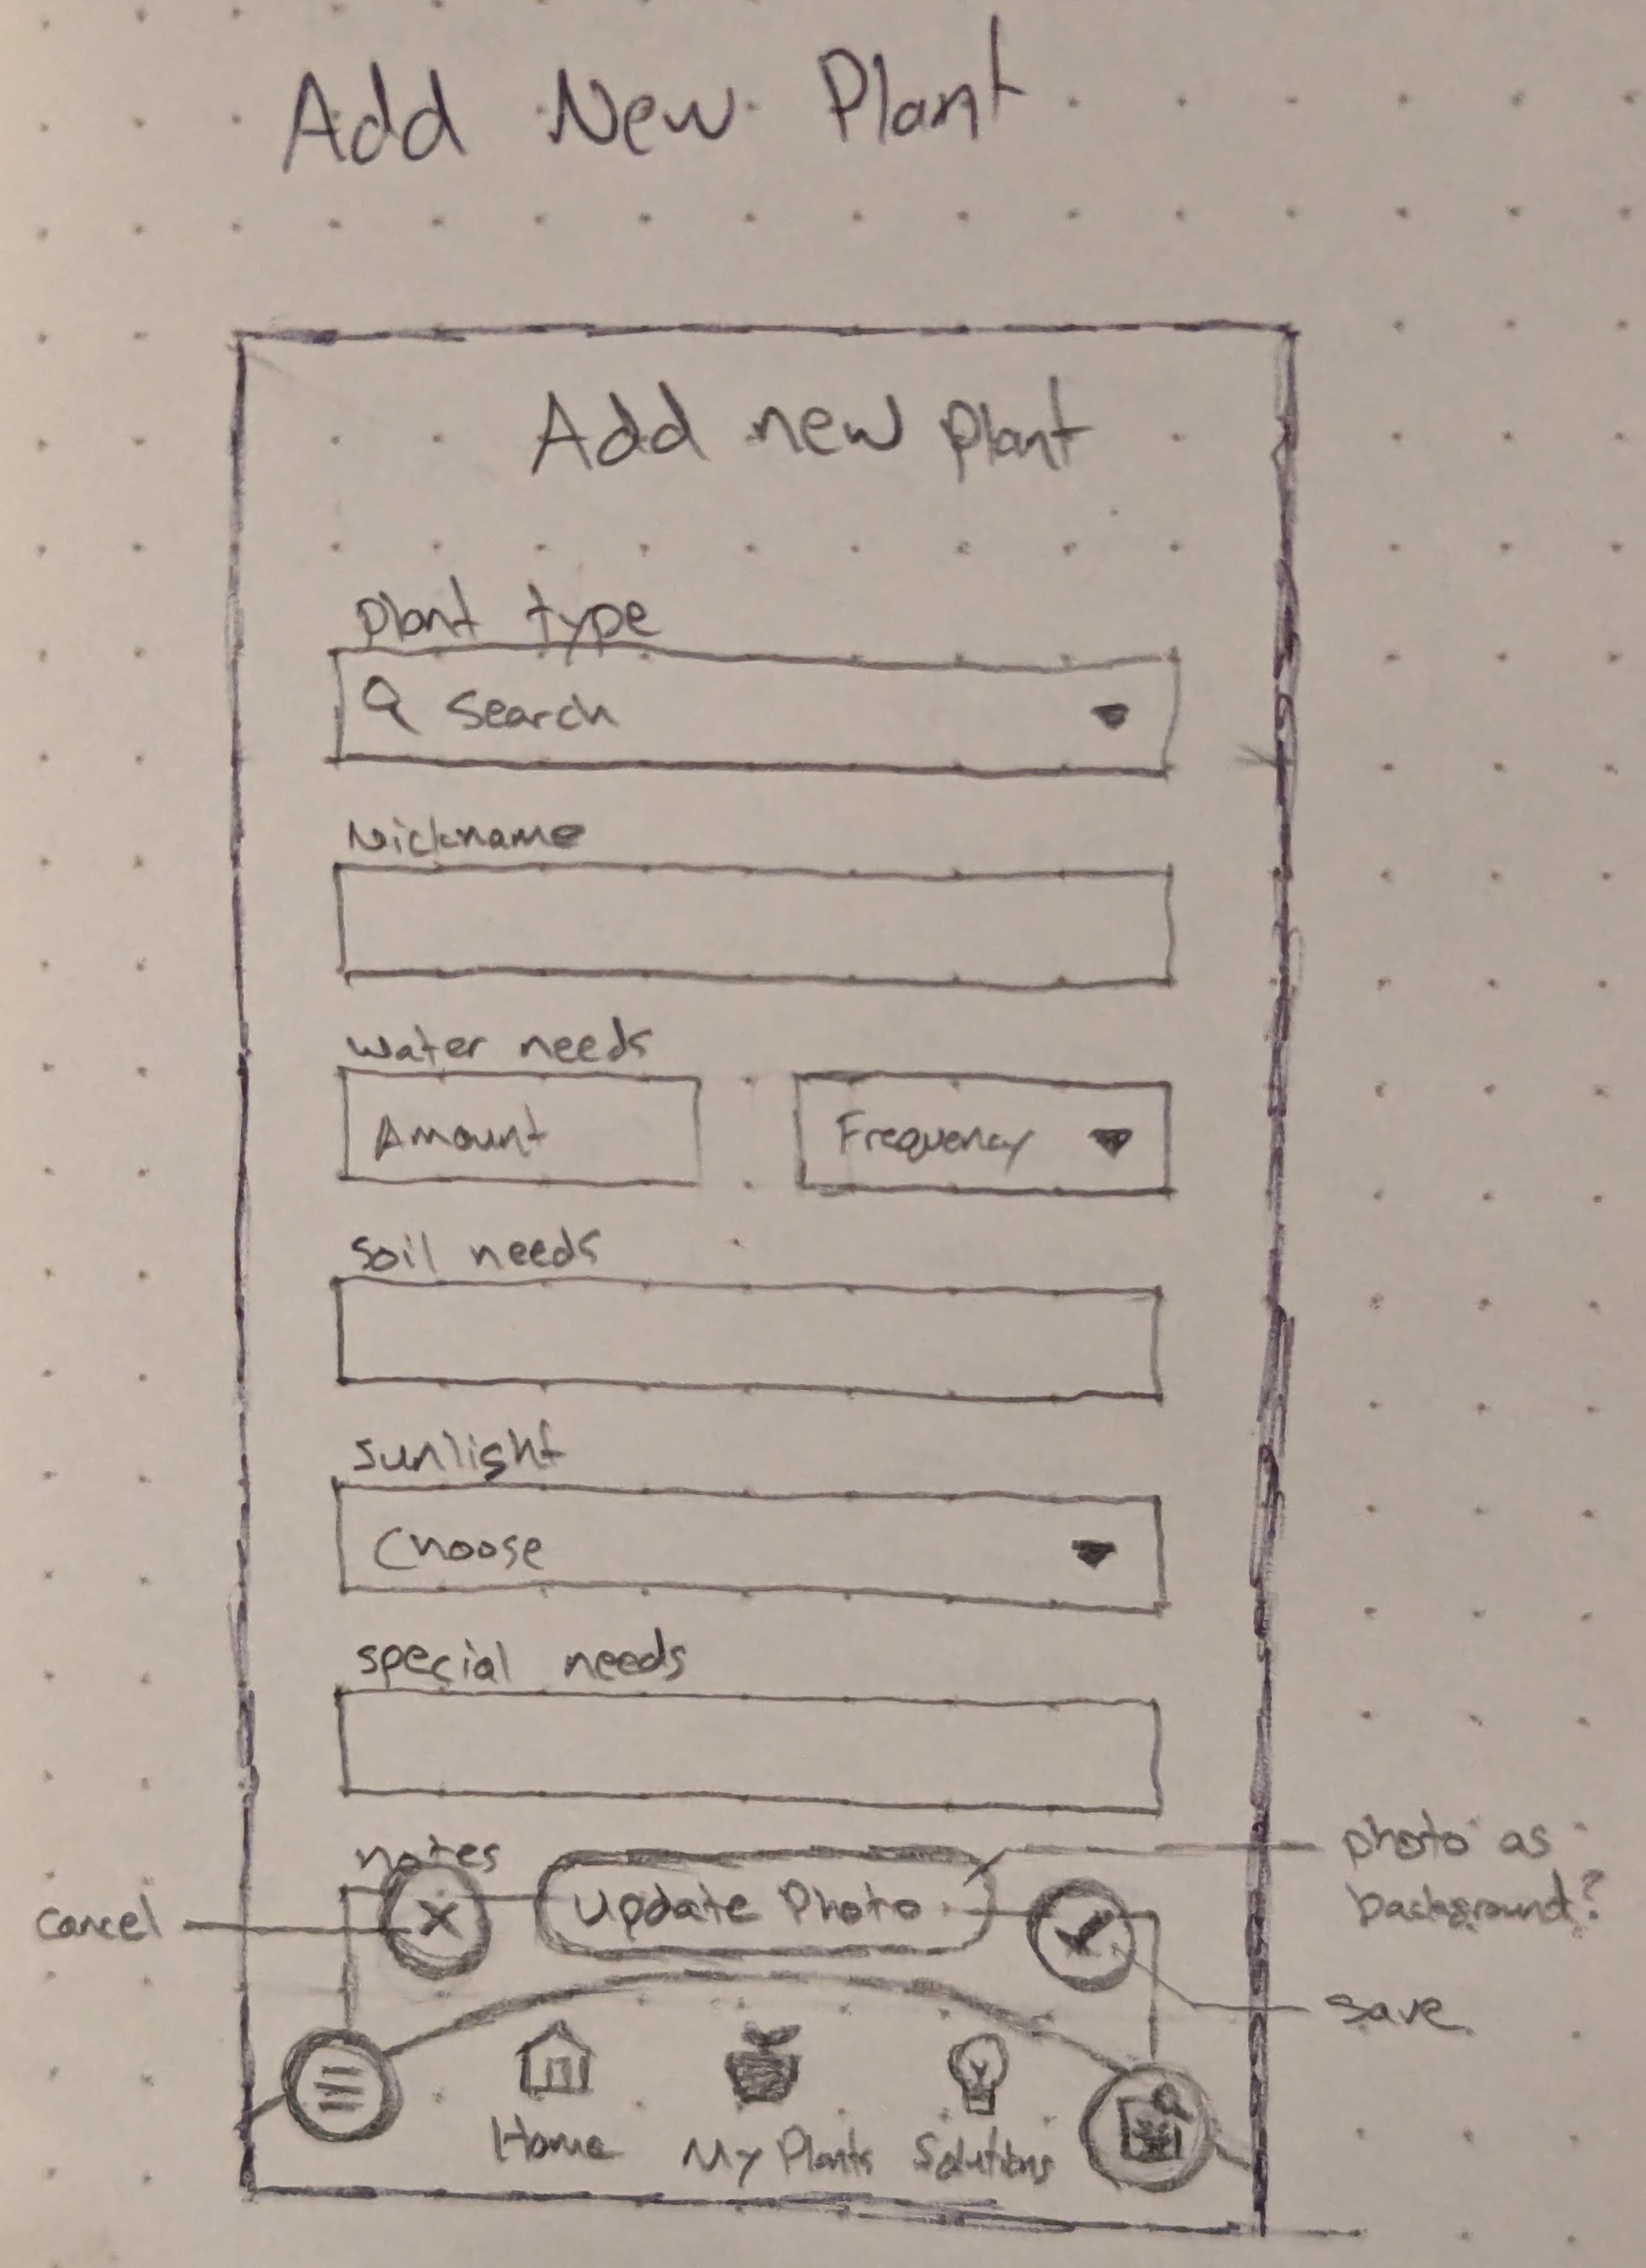 Add New Plant
Add new plant
plant type
Search
Nickname
water needs
Amount
Frequency
soil needs
sunlight
Choose
special needs
notes
Update Photo
photo as
background?
cancel
save
Home
My Plants
Solutions